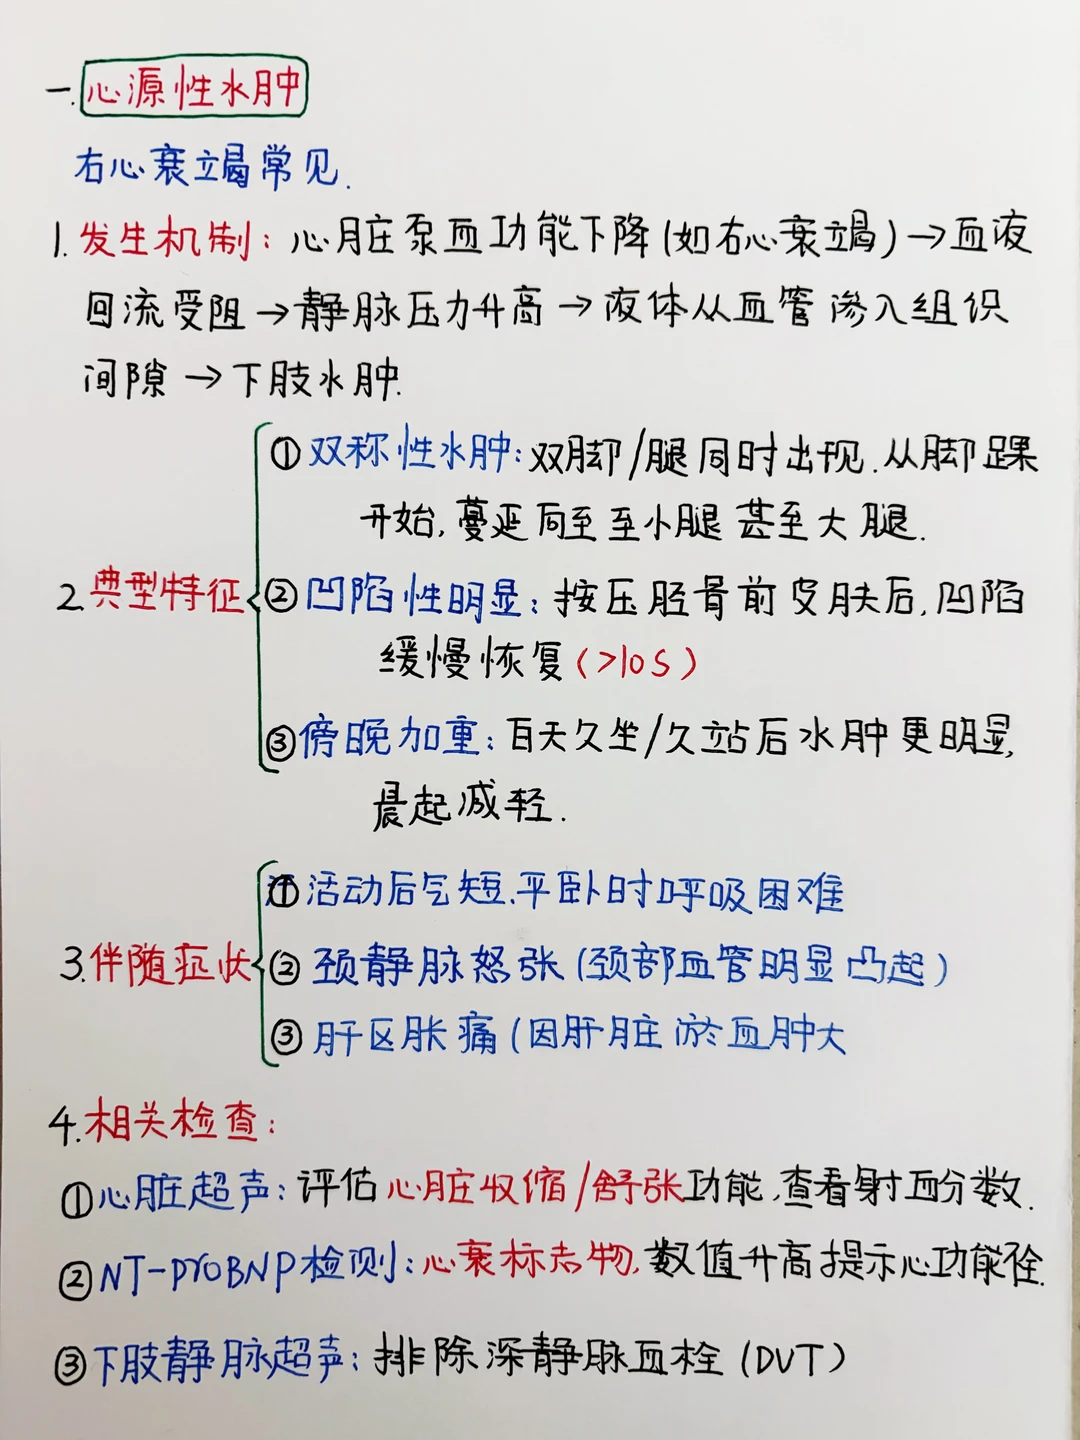 一.心源性水肿
右心衰竭常见.
1.发生机制:心脏泵血功能下降(如右心衰竭)→血液
回流受阻→静脉压力升高→液体从血管渗入组织
间隙→下肢水肿.
①双称性水肿:双脚/腿同时出现.从脚踝
开始,蔓延向至至小腿甚至大腿.
2.典型特征
②凹陷性明显:按压胫骨前皮肤后,凹陷
缓慢恢复(>10S)
③傍晚加重:百天久坐/久站后水肿更明显,
晨起减轻.
①活动后气短.平卧时呼吸困难
3.伴随症状
②颈静脉怒张(颈部血管明显凸起)
③肝区胀痛(因肝脏淤血肿大
4.相关检查:
①心脏超声:评估心脏收缩/舒张功能,查看射血分数.
②NT-proBNP检测:心衰标志物,数值升高提示心功能
③下肢静脉超声:排除深静脉血栓(DVT)